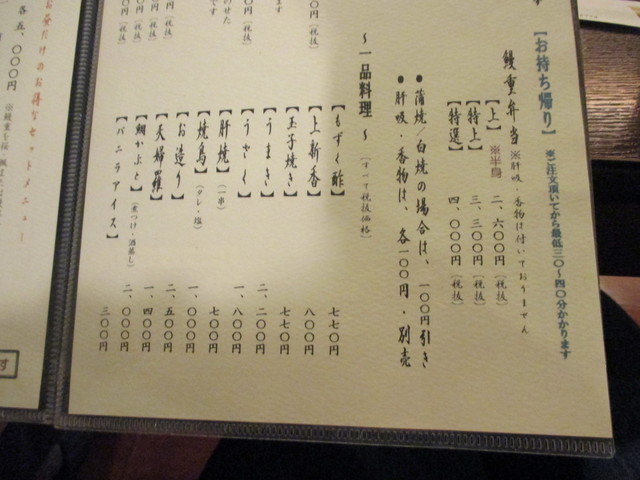 【お持ち帰り】 ※ご注文頂いてから最低三〇〜四〇分かかります
鰻重弁当 ※肝吸・香物は付いておりません
【上】 ※半身 二、六〇〇円（税抜）
【特上】 三、三〇〇円（税抜）
【特選】 四、〇〇〇円（税抜）
● 蒲焼／白焼の場合は、一〇〇円引き
● 肝吸・香物は、各一〇〇円・別売
〜一品料理〜（すべて税抜価格）
【もずく酢】 七七〇円
【上新香】 八〇〇円
【玉子焼き】 七七〇円
【うまき】 二、二〇〇円
【うざく】 一、八〇〇円
【肝焼】（一串） 七〇〇円
【焼鳥】（タレ・塩） 一、〇〇〇円
【お造り】 二、五〇〇円
【天婦羅】 一、四〇〇円
【鯛かぶと】（煮つけ・酒蒸し） 二、〇〇〇円
【バニラアイス】 三〇〇円
〇円（税抜）
ます
のせた
です
〇円（税抜）
〇円（税抜）
〇円（税抜）
〇円（税抜）
お昼だけのお得なセットメニュー
各五、〇〇〇円